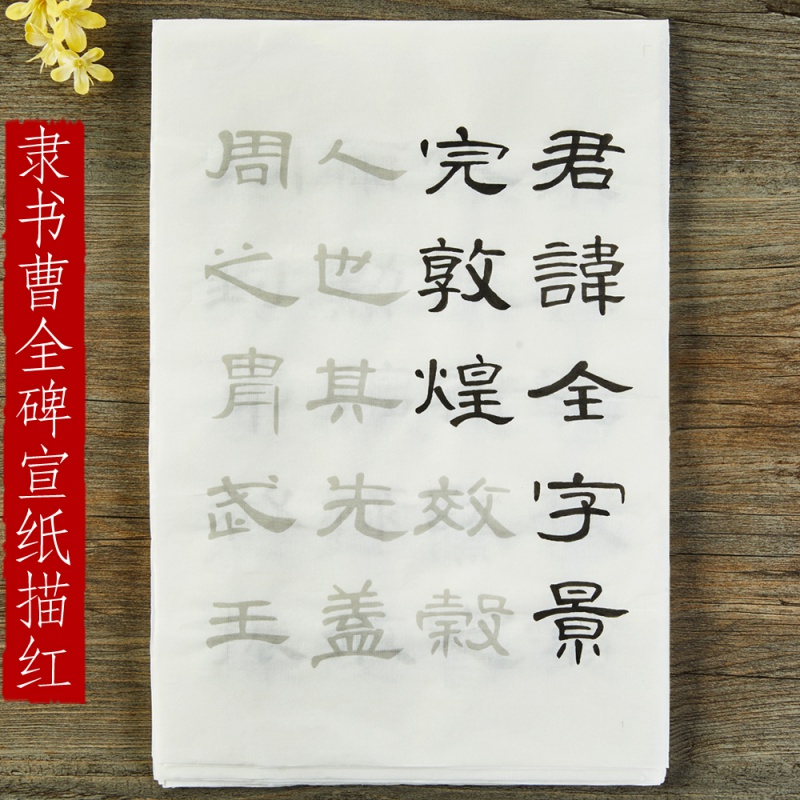 隶书曹全碑宣纸描红
君諱全字景
完敦煌效穀
人也其先蓋
周之胄武王